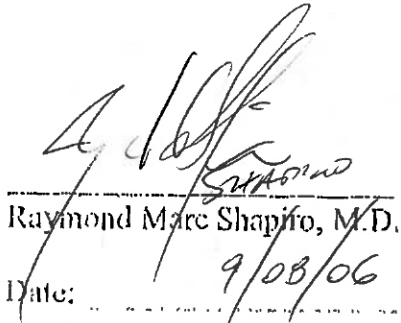 SHAPIRO
Raymond Marc Shapiro, M.D.
Date: 9/08/06